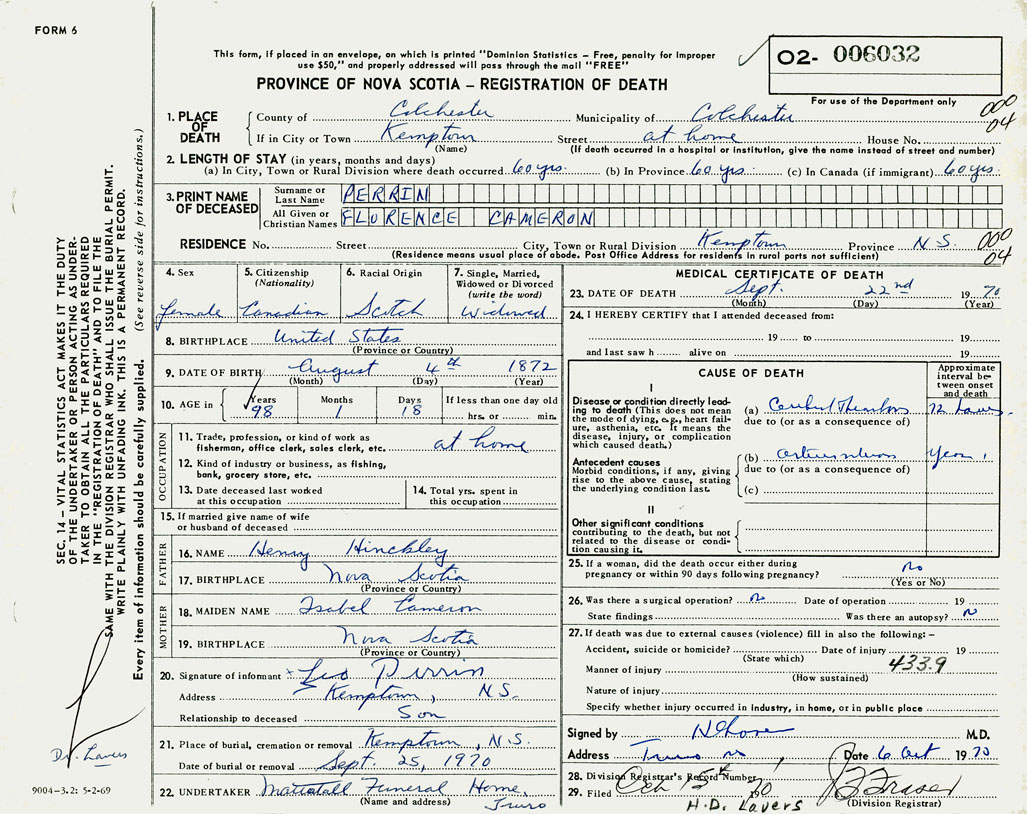 FORM 6
This form, if placed in an envelope, on which is printed "Dominion Statistics – Free, penalty for improper
use $50," and properly addressed will pass through the mail "FREE"
PROVINCE OF NOVA SCOTIA – REGISTRATION OF DEATH
O2- 006032
For use of the Department only
000
04
1. PLACE OF DEATH
County of Colchester Municipality of Colchester
If in City or Town Kemptown Street at home House No.
(Name) (If death occurred in a hospital or institution, give the name instead of street and number)
2. LENGTH OF STAY (in years, months and days)
(a) In City, Town or Rural Division where death occurred 60 yrs. (b) In Province 60 yrs. (c) In Canada (if immigrant) 60 yrs.
3. PRINT NAME OF DECEASED
Surname or Last Name PERRIN
All Given or Christian Names FLORENCE CAMERON
RESIDENCE No. Street City, Town or Rural Division Kemptown Province N.S.
(Residence means usual place of abode. Post Office Address for residents in rural parts not sufficient)
000
04
4. Sex
female
5. Citizenship (Nationality)
Canadian
6. Racial Origin
Scotch
7. Single, Married, Widowed or Divorced (write the word)
Widowed
8. BIRTHPLACE United States
(Province or Country)
9. DATE OF BIRTH August 4th 1872
(Month) (Day) (Year)
10. AGE in Years Months Days If less than one day old
98 1 18 hrs. or min.
OCCUPATION
11. Trade, profession, or kind of work as
fisherman, office clerk, sales clerk, etc. at home
12. Kind of industry or business, as fishing,
bank, grocery store, etc.
13. Date deceased last worked
at this occupation
14. Total yrs. spent in
this occupation
15. If married give name of wife
or husband of deceased
FATHER
16. NAME Henry Hinckley
17. BIRTHPLACE Nova Scotia
(Province or Country)
MOTHER
18. MAIDEN NAME Isabel Cameron
19. BIRTHPLACE Nova Scotia
(Province or Country)
20. Signature of informant x Leo Perrin
Address Kemptown, N.S.
Relationship to deceased Son
21. Place of burial, cremation or removal Kemptown, N.S.
Date of burial or removal Sept. 25, 1970
22. UNDERTAKER Mattatall Funeral Home,
(Name and address) Truro
MEDICAL CERTIFICATE OF DEATH
23. DATE OF DEATH Sept. 22nd 1970
(Month) (Day) (Year)
24. I HEREBY CERTIFY that I attended deceased from:
19 to 19
and last saw h alive on 19
CAUSE OF DEATH
Approximate interval between onset and death
I
Disease or condition directly leading to death (This does not
mean the mode of dying, e.g., heart failure, asthenia, etc. It means the
disease, injury, or complication
which caused death.)
(a) 72 hours
due to (or as a consequence of)
Antecedent causes
Morbid conditions, if any, giving
rise to the above cause, stating
the underlying condition last.
(b) Years
due to (or as a consequence of)
(c)
II
Other significant conditions
contributing to the death, but not
related to the disease or condition
causing it.
25. If a woman, did the death occur either during
pregnancy or within 90 days following pregnancy? no
(Yes or No)
26. Was there a surgical operation? no Date of operation 19
State findings Was there an autopsy? no
27. If death was due to external causes (violence) fill in also the following:–
Accident, suicide or homicide? Date of injury 19
(State which)
Manner of injury 433.9
(How sustained)
Nature of injury
Specify whether injury occurred in industry, in home, or in public place
Signed by M.D.
Address Truro NS Date 6 Oct 1970
28. Division Registrar's Record Number
29. Filed Oct 15th 1970 Fraser
(Division Registrar)
H.D. LAVERS
SEC. 14 – VITAL STATISTICS ACT MAKES IT THE DUTY
OF THE UNDERTAKER OR PERSON ACTING AS UNDERTAKER
TO OBTAIN ALL THE PARTICULARS REQUIRED
IN THE "REGISTRATION OF DEATH" AND TO FILE THE
SAME WITH THE DIVISION REGISTRAR WHO SHALL ISSUE THE BURIAL PERMIT.
WRITE PLAINLY WITH UNFADING INK. THIS IS A PERMANENT RECORD.
Every item of information should be carefully supplied. (See reverse side for instructions.)
Dr. Lavers
9004-3.2: 5-2-69